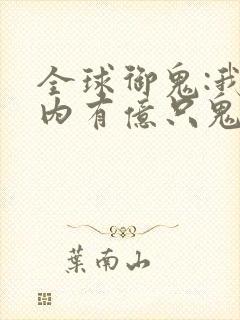 全球御鬼:我
内有億只鬼
葉南山